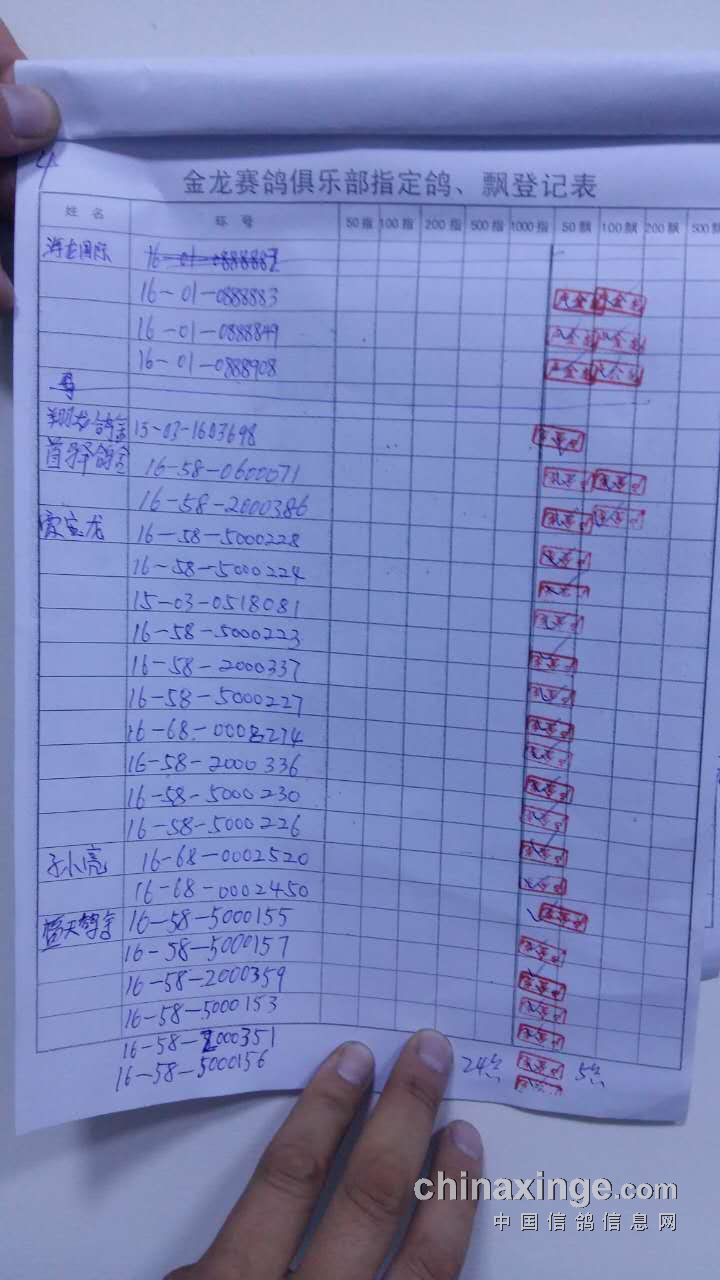 4
金龙赛鸽俱乐部指定鸽、飘登记表
姓名 环号 50指 100指 200指 500指 1000指 50飘 100飘 200飘 500飘
海龙国际 16-01-0888887
16-01-0888883
16-01-0888849
16-01-0888908
翔龙鸽舍 15-03-1603698
首泽鸽舍 16-58-0600071
16-58-2000386
雷宝龙 16-58-5000228
16-58-5000224
15-03-0518081
16-58-5000223
16-58-2000337
16-58-5000227
16-68-0008274
16-58-2000336
16-58-5000230
16-58-5000226
小亮 16-68-0002520
16-68-0002450
蓝天鸽舍 16-58-5000155
16-58-5000157
16-58-2000359
16-58-5000153
16-58-2000351
16-58-5000156
24 5
chinaxinge.com
中国信鸽信息网